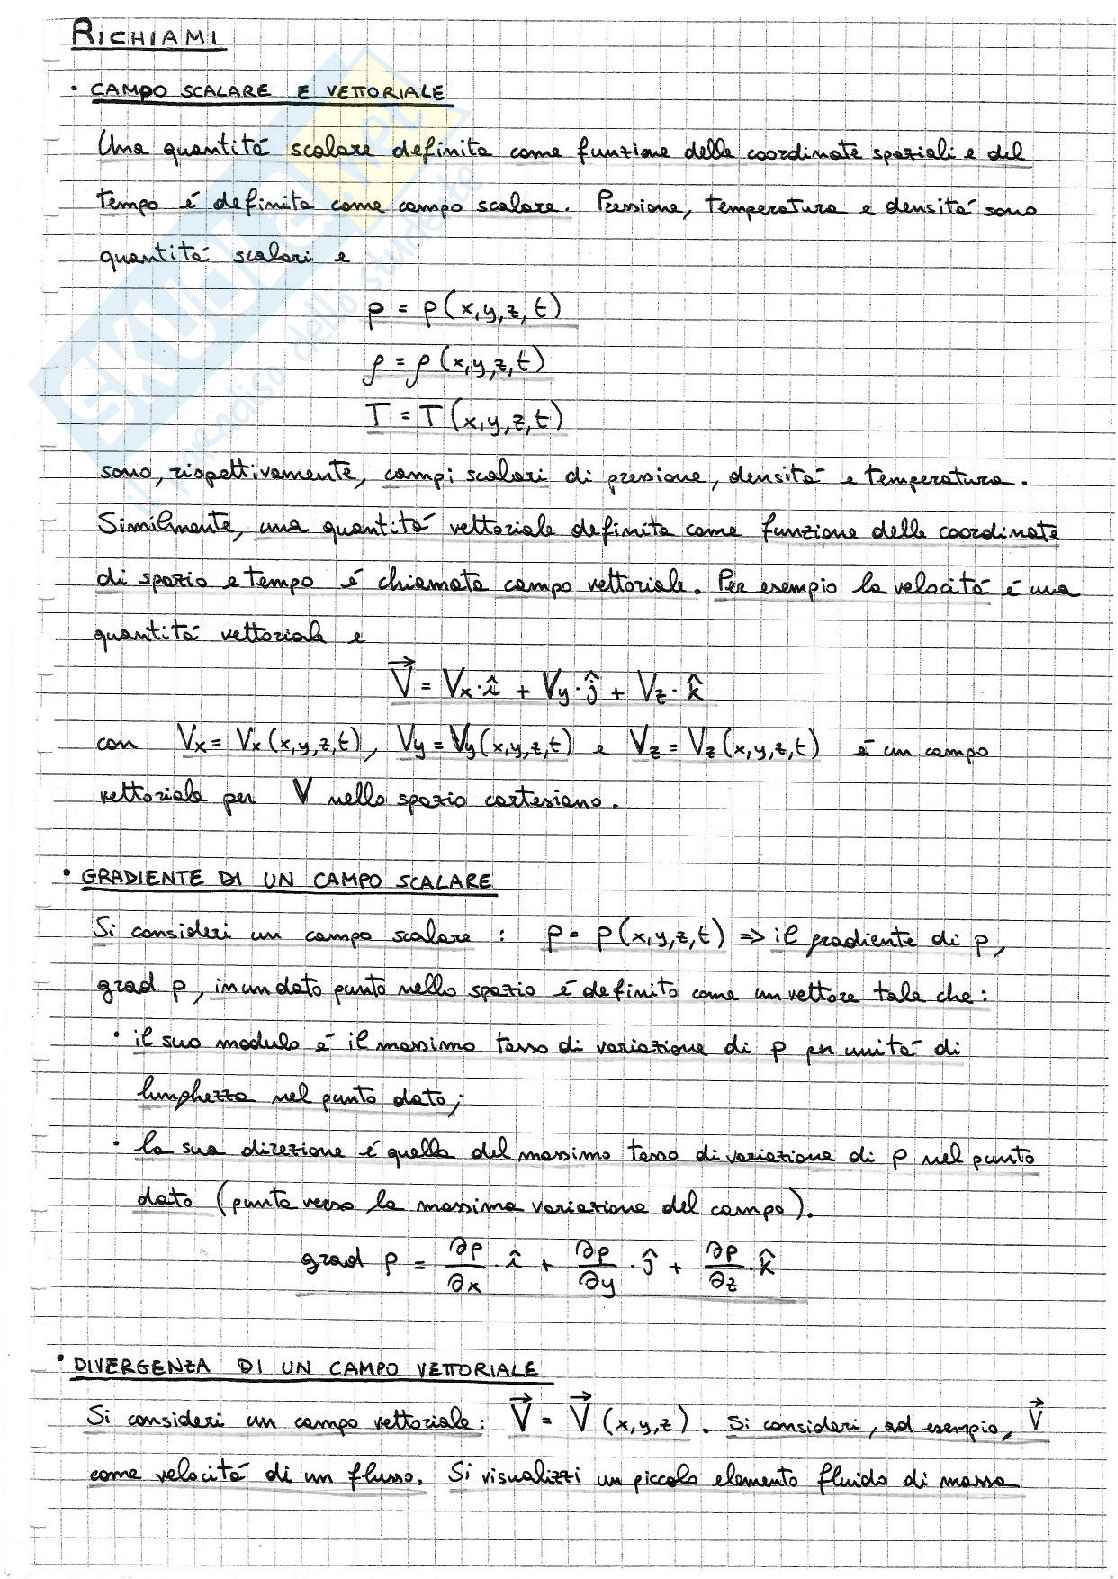 RICHIAMI
• CAMPO SCALARE E VETTORIALE
Una quantità scalare definita come funzione delle coordinate spaziali e del
tempo é definita come campo scalare. Pressione, temperatura e densità sono
quantità scalari e
p = p(x,y,z,t)
ρ = ρ(x,y,z,t)
T = T(x,y,z,t)
sono, rispettivamente, campi scalari di pressione, densità e temperatura.
Similmente, una quantità vettoriale definita come funzione delle coordinate
di spazio e tempo é chiamata campo vettoriale. Per esempio la velocità é una
quantità vettoriale e
V⃗ = Vx·î + Vy·ĵ + Vz·k̂
con Vx = Vx(x,y,z,t), Vy = Vy(x,y,z,t) e Vz = Vz(x,y,z,t) é un campo
vettoriale per V nello spazio cartesiano.
• GRADIENTE DI UN CAMPO SCALARE
Si consideri un campo scalare : p = p(x,y,z,t) => il gradiente di p,
grad p, in un dato punto nello spazio é definito come un vettore tale che:
• il suo modulo é il massimo tasso di variazione di p per unità di
lunghezza nel punto dato;
• la sua direzione é quella del massimo tasso di variazione di p nel punto
dato (punta verso la massima variazione del campo).
grad p = ∂p/∂x · î + ∂p/∂y · ĵ + ∂p/∂z · k̂
• DIVERGENZA DI UN CAMPO VETTORIALE
Si consideri un campo vettoriale: V⃗ = V⃗ (x,y,z). Si consideri, ad esempio, V⃗
come velocità di un flusso. Si visualizzi un piccolo elemento fluido di massa